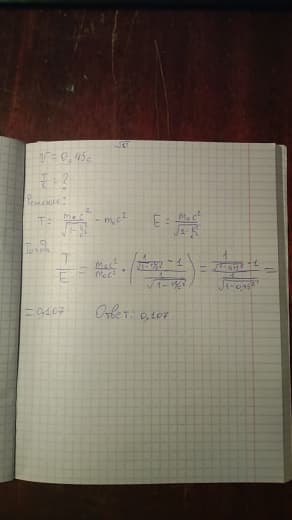 v = 0,45c
T/E = ?
Решение:
T = m₀c²/√(1-v²/c²) - m₀c² E = m₀c²/√(1-v²/c²)
T/E = m₀c²/m₀c² · ((1/√(1-v²/c²) - 1)/(1/√(1-v²/c²))) = (1/√(1-0,45²) - 1)/(1/√(1-0,45²)) =
= 0,107 Ответ: 0,107